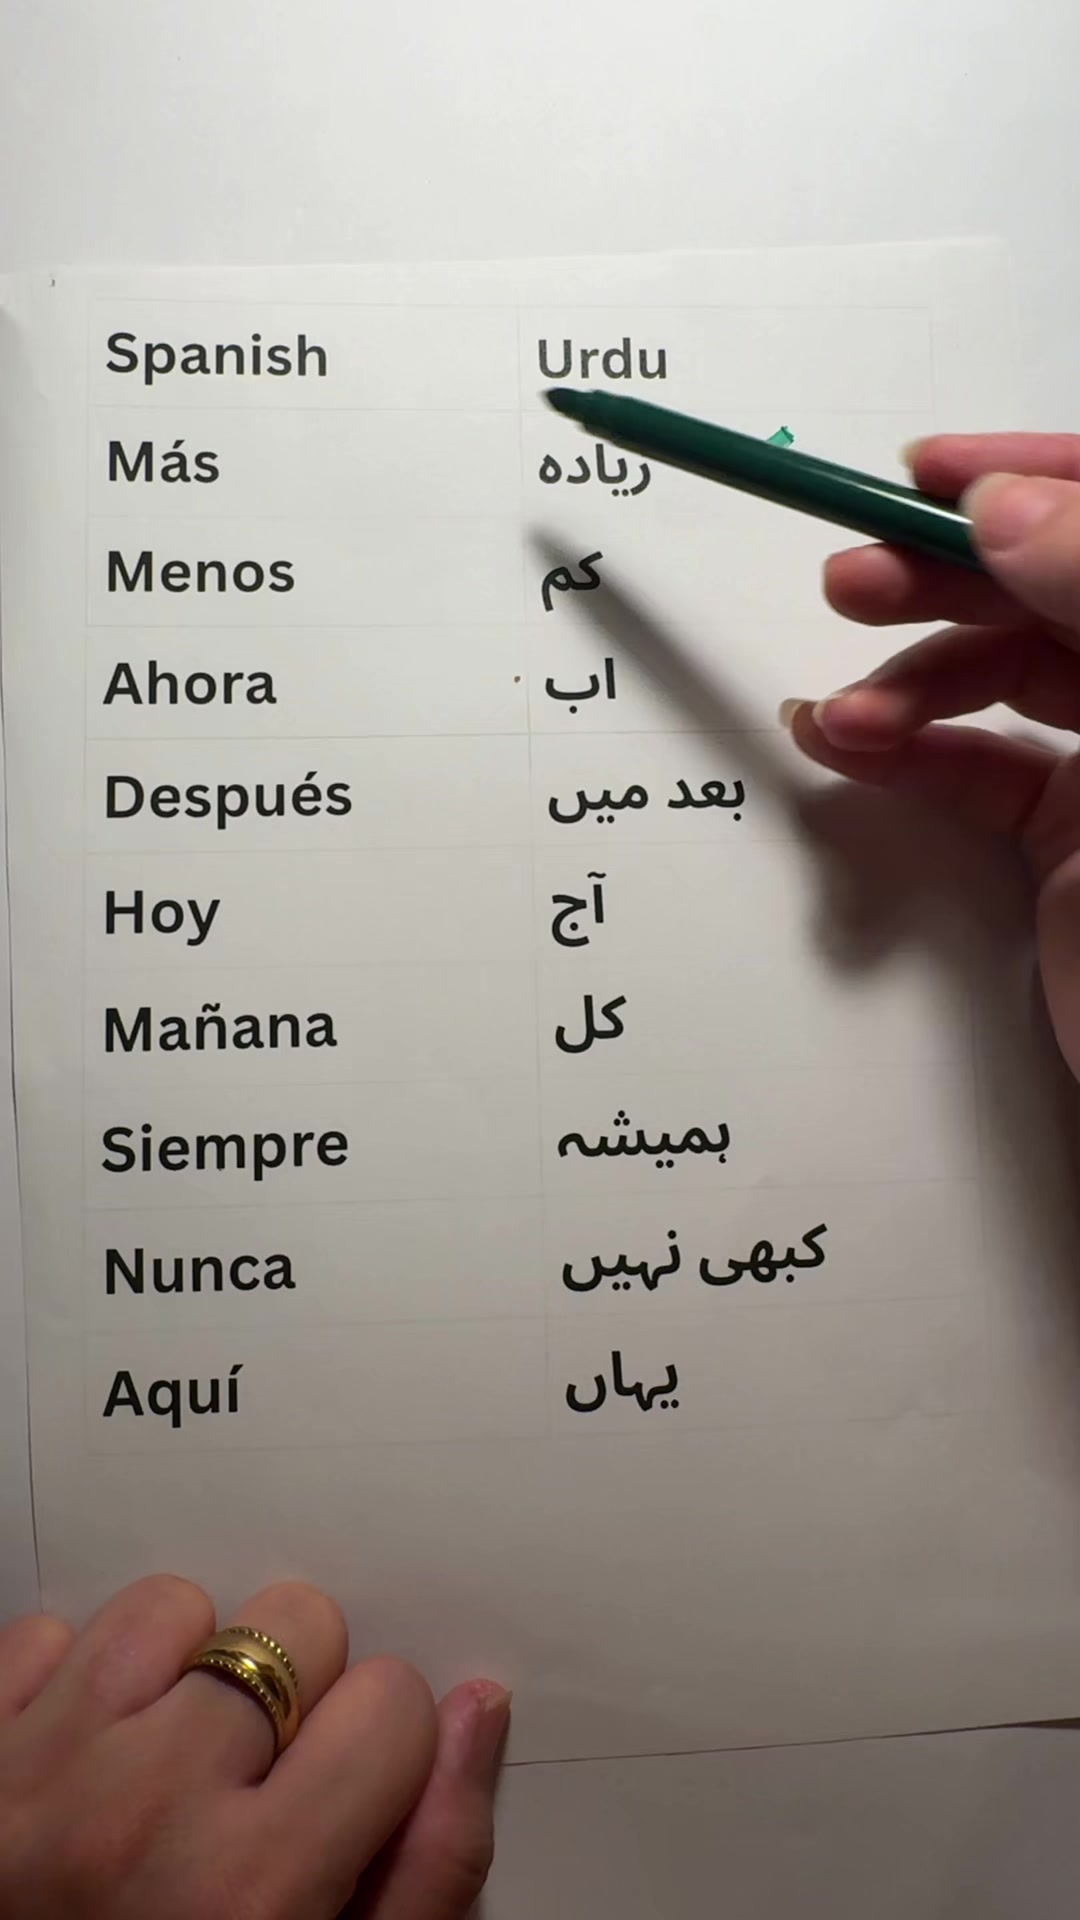 Spanish Urdu
Más زیادہ
Menos کم
Ahora اب
Después بعد میں
Hoy آج
Mañana کل
Siempre ہمیشہ
Nunca کبھی نہیں
Aquí یہاں